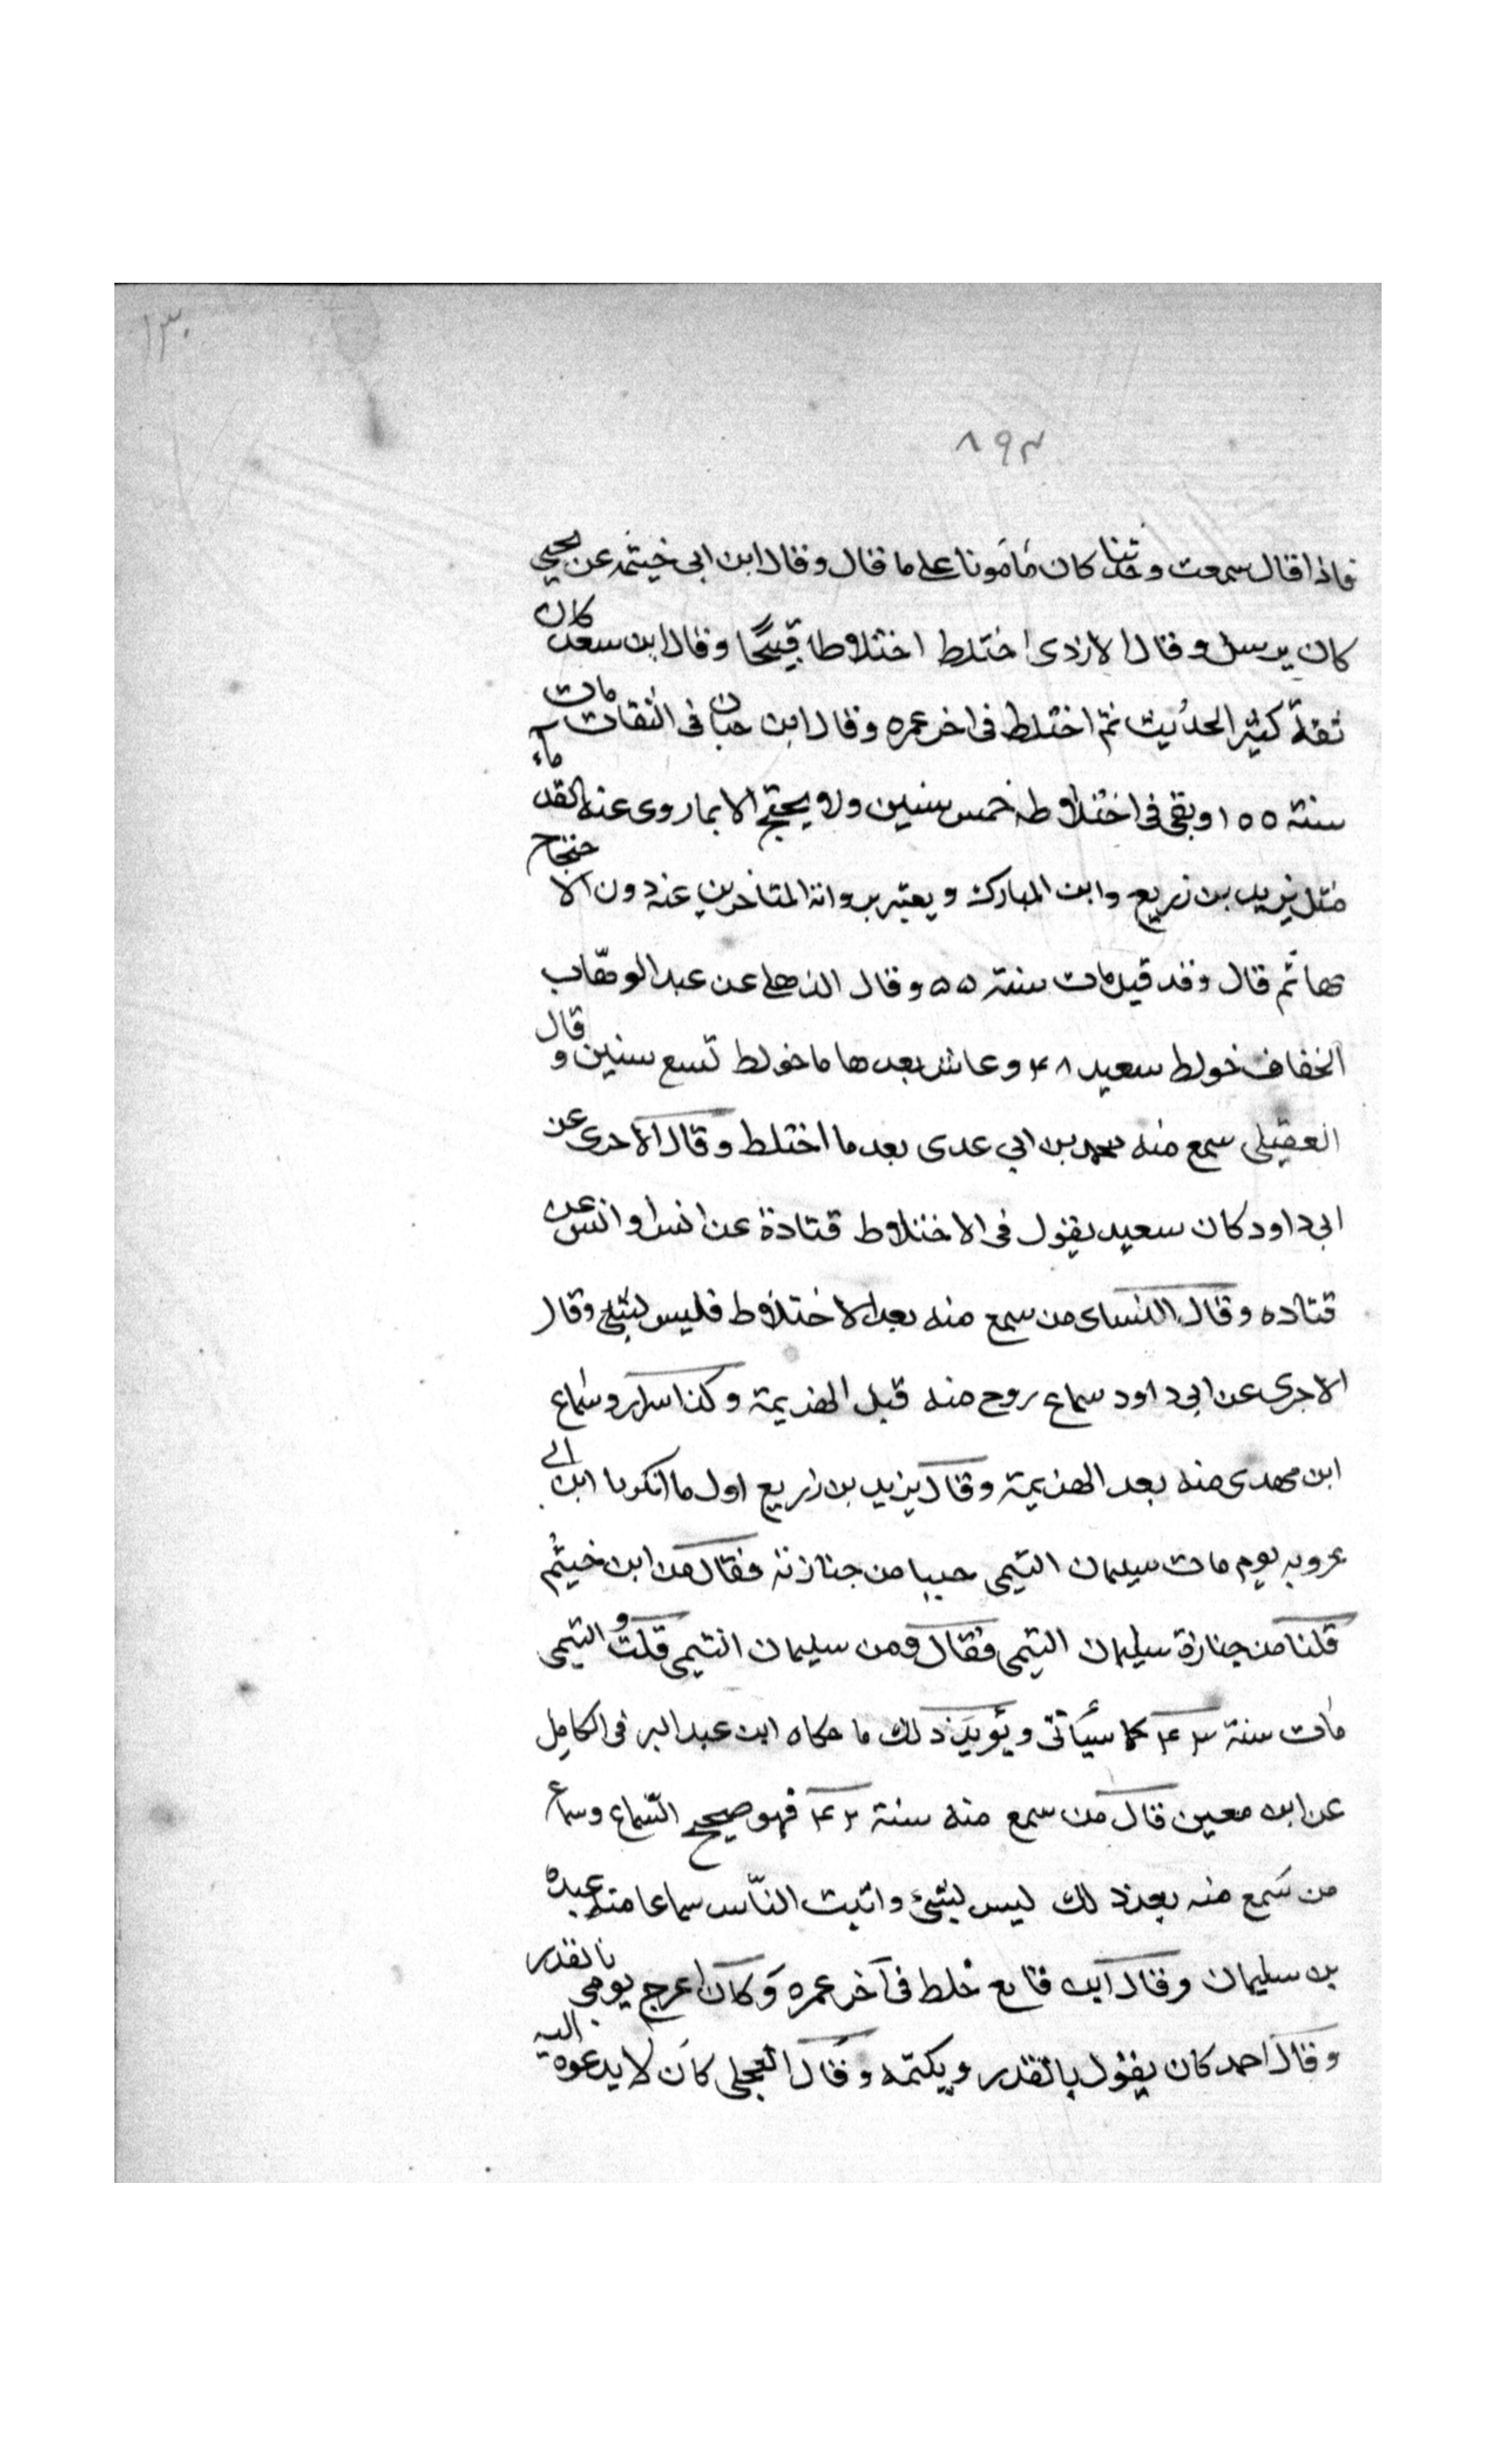 ١٣٠
٨٩٣
فاذا قال سمعت وحدثنا كان مأمونا على ما قال وقال ابن ابى خيثمه عن يحيى
كان يرسل وقال الازدى اختلط اختلاطا قبيحًا وقال ابن سعد كان
ثقة كثير الحديث ثم اختلط فى اخر عمره وقال ابن حبان فى الثقات مات
سنة ١٥٥ وبقى فى اختلاطه خمس سنين ولا يحتج الا بما روى عنه القدماء
مثل يزيد بن زريع وابن المبارك ويعتبر برواية المتاخرين عنه دون الاحتجاج
بها ثم قال وقد قيل مات سنة ٥٥ وقال الذهلى عن عبد الوهّاب
الخفاف خولط سعيد ٤٨ وعاش بعدها ما خولط تسع سنين وقال
العقيلى سمع منه محمد بن ابي عدى بعد ما اختلط وقال الاجرى عن
ابى داود كان سعيد يقول فى الاختلاط قتادة عن انس او انس عن
قتاده وقال النساى من سمع منه بعد الاختلاط فليس بشئ وقال
الاجرى عن ابى داود سماع روح منه قبل الهزيمة وكذا سرار وسماع
ابن مهدى منه بعد الهزيمة وقال يزيد بن زريع اول ما انكرنا ابن ابى
عروبه يوم مات سيلمان التيمى جينا من جنازته فقال من اين جيتم
قلنا من جنازة سليمان التيمى فقال ومن سليمان التيمى قلت والتيمى
مات سنة ٤٣ كما سيأتى ويؤيد ذلك ما حكاه ابن عبد البر فى الكامل
عن ابن معين قال من سمع منه سنة ٤٢ فهو صحيح السّماع وسماع
من سمع منه بعد ذلك ليس بشئ واثبت النّاس سماعا منه عبدة
بن سليمان وقال ابن قانع خلط فى آخر عمره وكان اعرج يومى بالقدر
وقال احمد كان يقول بالقدر ويكتمه وقال العجلى كان لا يدعو اليه